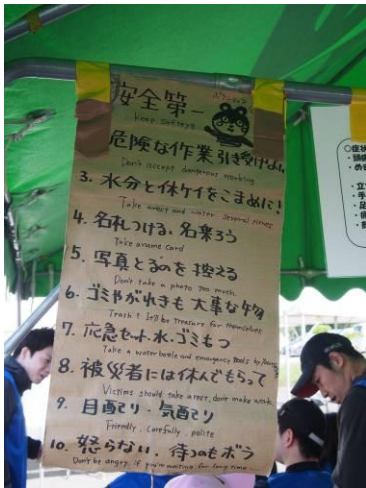 安全第一
Keep safety
危険な作業引き受けない
Don't accept dangerous working
3. 水分と休ケイをこまめに!
Take a rest and water several times
4. 名札つける、名乗ろう
Take a name card
5. 写真とるのを控える
Don't take a photo too much.
6. ゴミやがれきも大事な物
Trash? It'll be treasure for themselves
7. 応急セット・水・ゴミもつ
Take a water bottle and emergency tools by
8. 被災者には休んでもらって
Victims should take a rest, don't make work.
9. 目配り・気配り
Friendly, carefully, polite
10. 怒らない、待つのもボラ
Don't be angry, if you're waiting for long time.